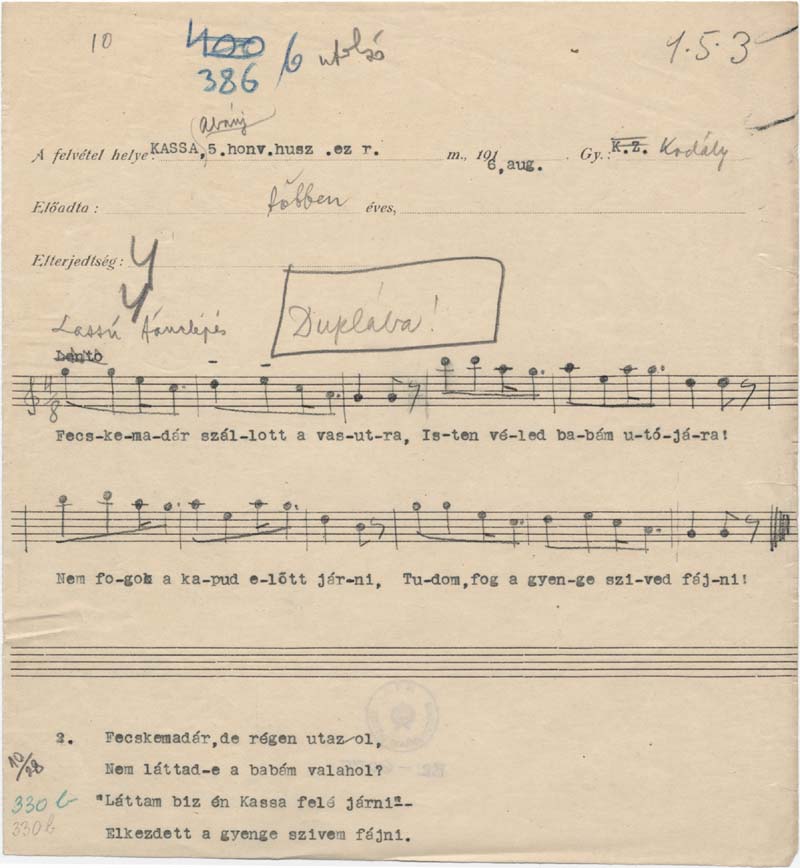 10 400 b utolsó 1.5.3
386
Abaúj
A felvétel helye: KASSA, 5.honv.husz .ez r. m., 191 6,aug. Gy.: K.Z. Kodály
Előadta : többen éves,
Elterjedtség :
Dupláva!
Lassú tánclépés
Lento
4/8
Fecs-ke-ma-dár szál-lott a vas-ut-ra, Is-ten vé-led ba-bám u-tó-já-ra!
Nem fo-gok a ka-pud e-lőtt jár-ni, Tu-dom,fog a gyen-ge szi-ved fáj-ni!
2. Fecskemadár,de régen utaz ol,
10/28 Nem láttad-e a babám valahol?
330 b "Láttam biz én Kassa felé járni"-
330 b Elkezdett a gyenge szivem fájni.